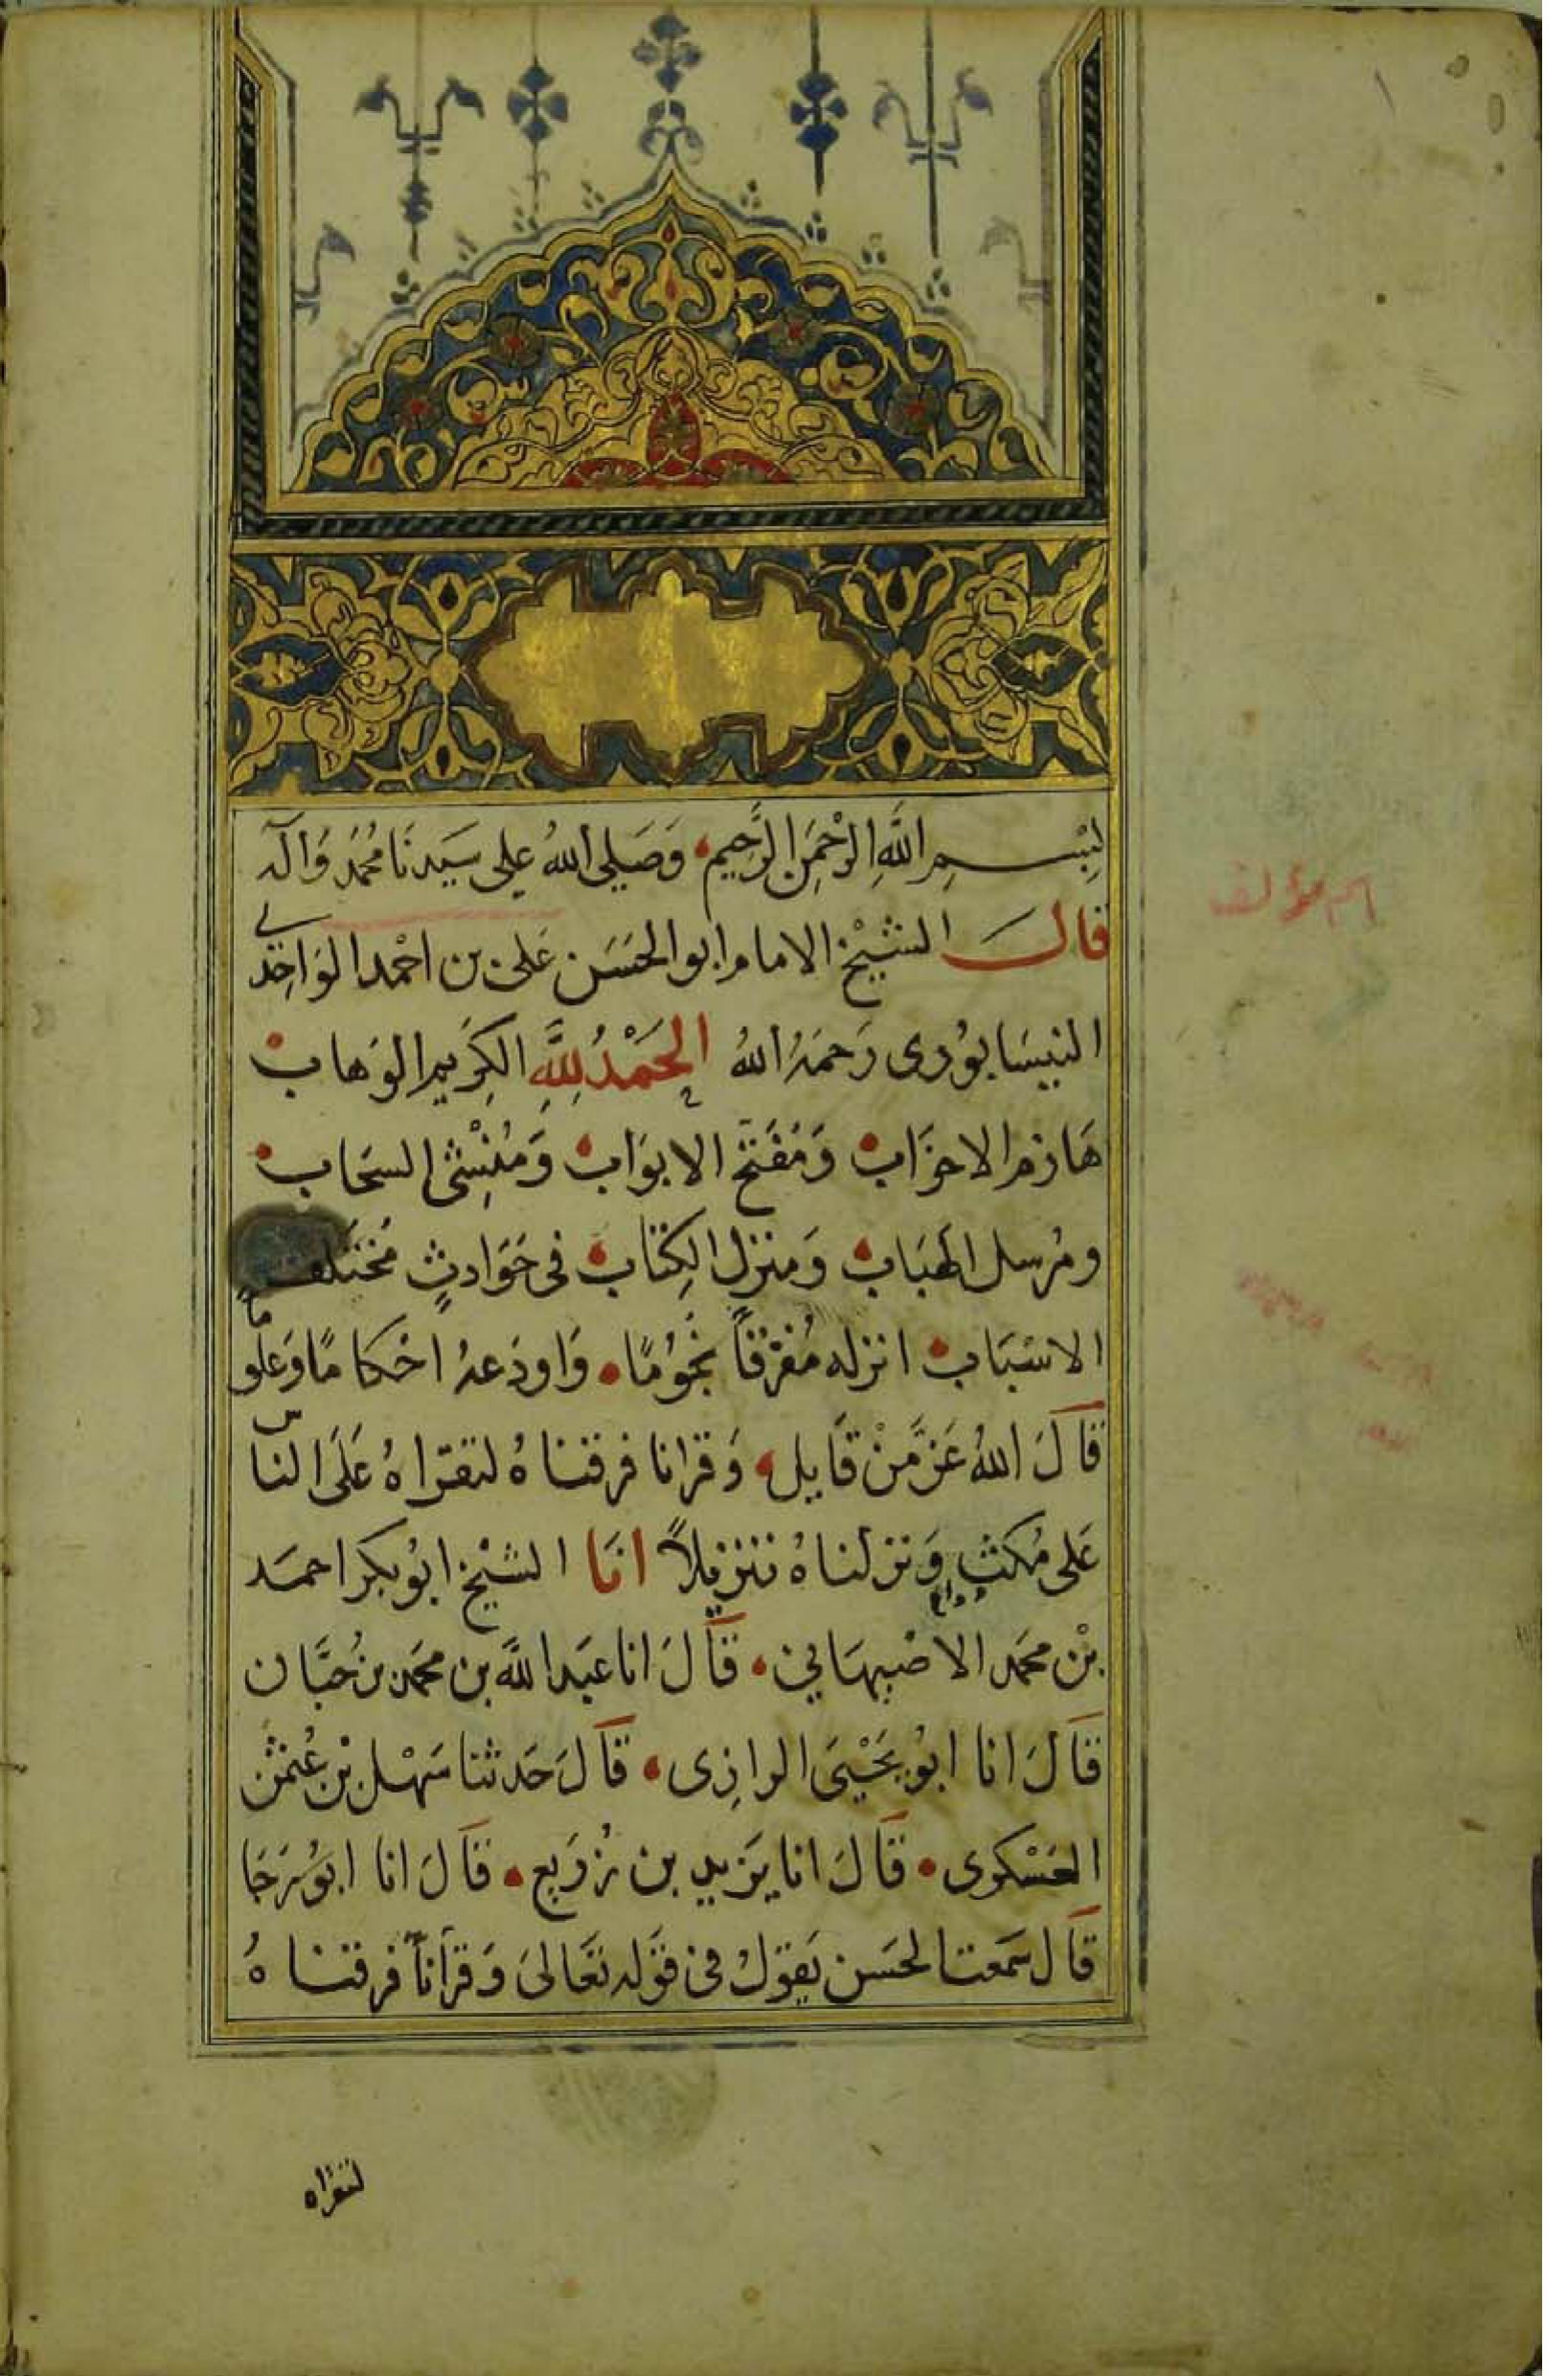 بِسْمِ اللَّهِ الرَّحْمَنِ الرَّحِيم وَصَلى اللهُ على سَيدنَا مُحَمَّد وَآله
قال الشَيْخ الامام ابو الحَسَن عَلى بن احْمد الوَاحِدي
النيسَابوُرى رَحمَهُ اللهُ الحَمْدُ لِلَّهِ الكِرَيم الوَهاب
هَازم الاحزَاب وَمُفَتح الابوَاب وَمُنْشِئ السَحَاب
ومُرسل الهبَاب وَمنزل الكِتاب فى حَوَادثٍ مُختَلفة
الاسْبَاب انزله مُفَرّقاً نُجوُمًا وَاودَعهُ احْكامًا وَعلومًا
قالَ اللهُ عَزَّ مَنْ قَايل وَقرانا فرقناهُ لتقراهُ عَلَى الناس
عَلى مُكثٍ وَنزلناهُ تنزيلاً انا الشيْخ ابوُ بكر احمَد
بْن محمَد الاصْبهَاني قالَ انا عَبَد اللَّه بن محمَد بن حَبَّان
قالَ انا ابوُ يَحْيَى الرازِى قالَ حَدثنا سَهْل بْن عُثمٰن
العَسْكرى قالَ انا يَزيد بن زُرَيع قالَ انا ابوُ رَجَا
قَال سَمَعت الحَسَن يَقوَلُ فى قوَله تعَالىَ وَقرآناً فرقناهُ
لتقراه
اسم مؤلف